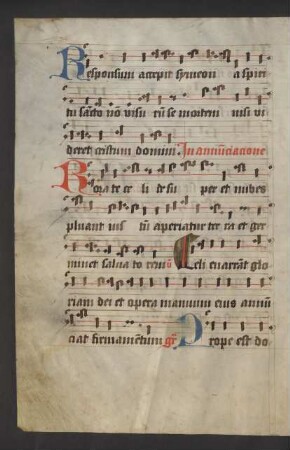 Responsum accepit symeon a spiri
tu sancto nō visu rū se mortem nisi vi
deret cristum domini In annūciacione
Rora te ce li de su per et nubes
pluant ius tū aperiatur ter ra et ger
minet salua to rem Celi enarrāt glo
riam dei et opera manuum eius annū
ciat firmamētum gr̄ Prope est do